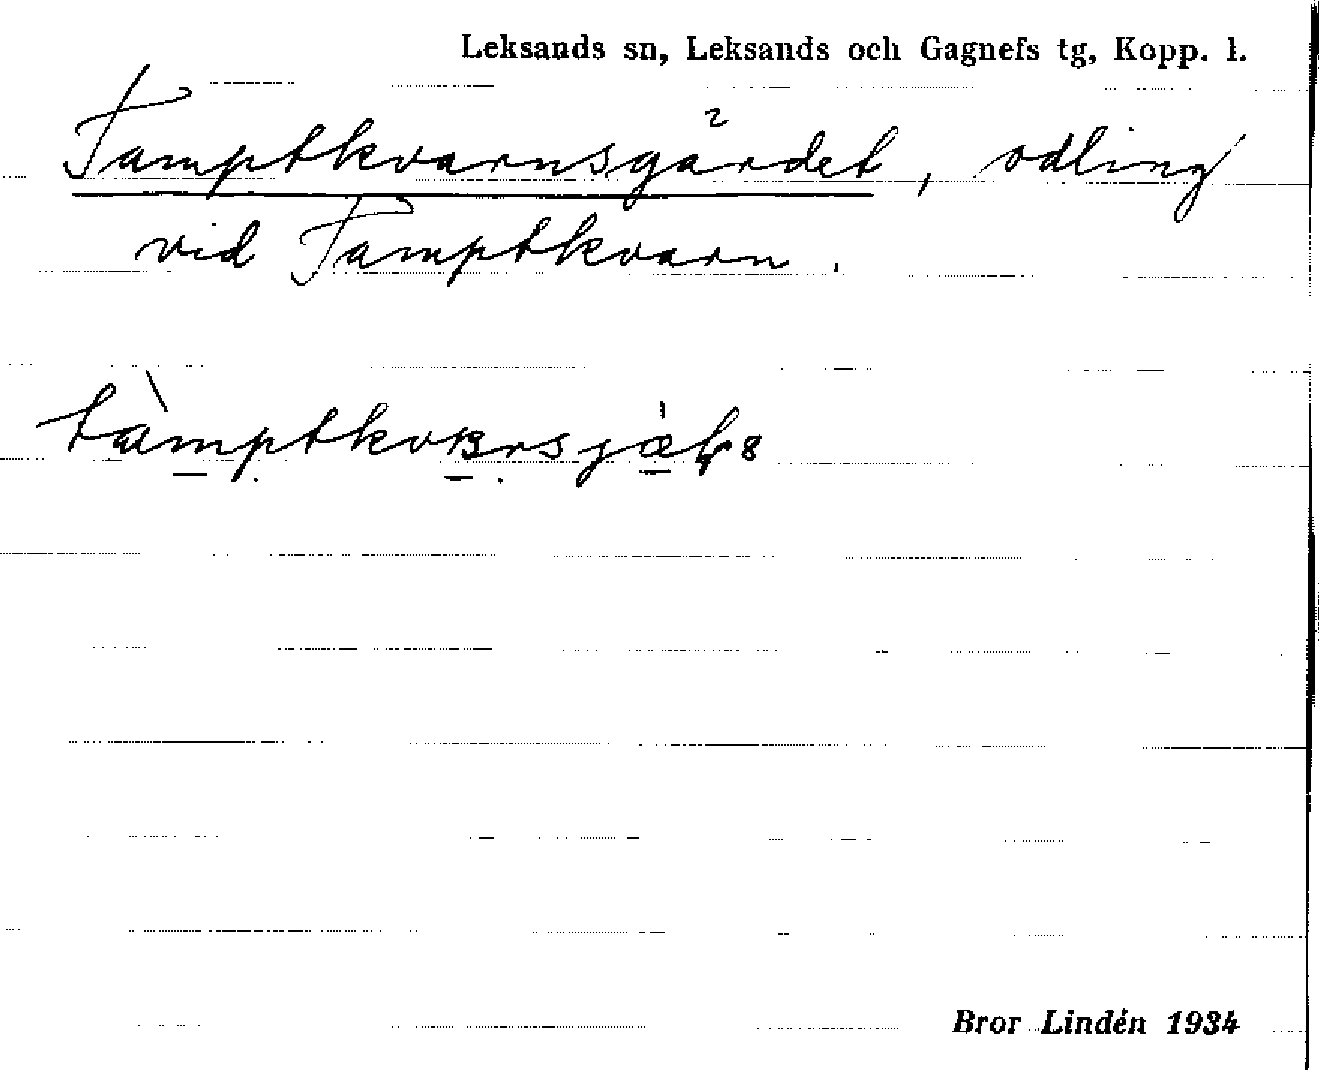 Leksands sn, Leksands och Gagnefs tg, Kopp. l.
Tamptkvarnsgärdet, odling
vid Tamptkvarn.
Bror Lindén 1934